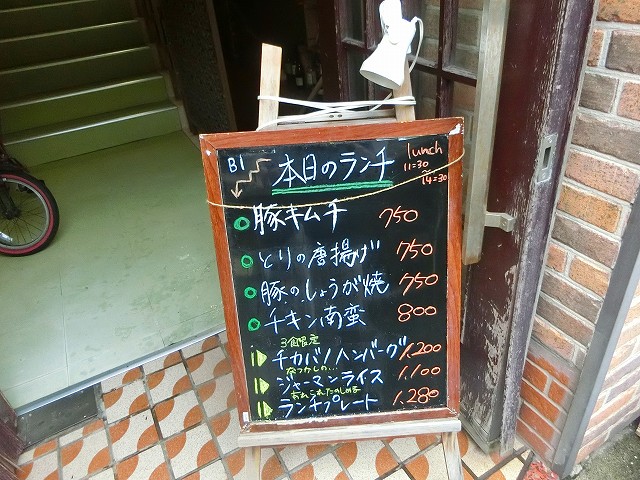 B1
本日のランチ
lunch
11:30
~14:30
豚キムチ 750
とりの唐揚げ 750
豚のしょうが焼 750
チキン南蛮 800
3食限定
チカバノハンバーグ 1,200
なつかしの…
ジャーマンライス 1,100
ランチプレート 1,280